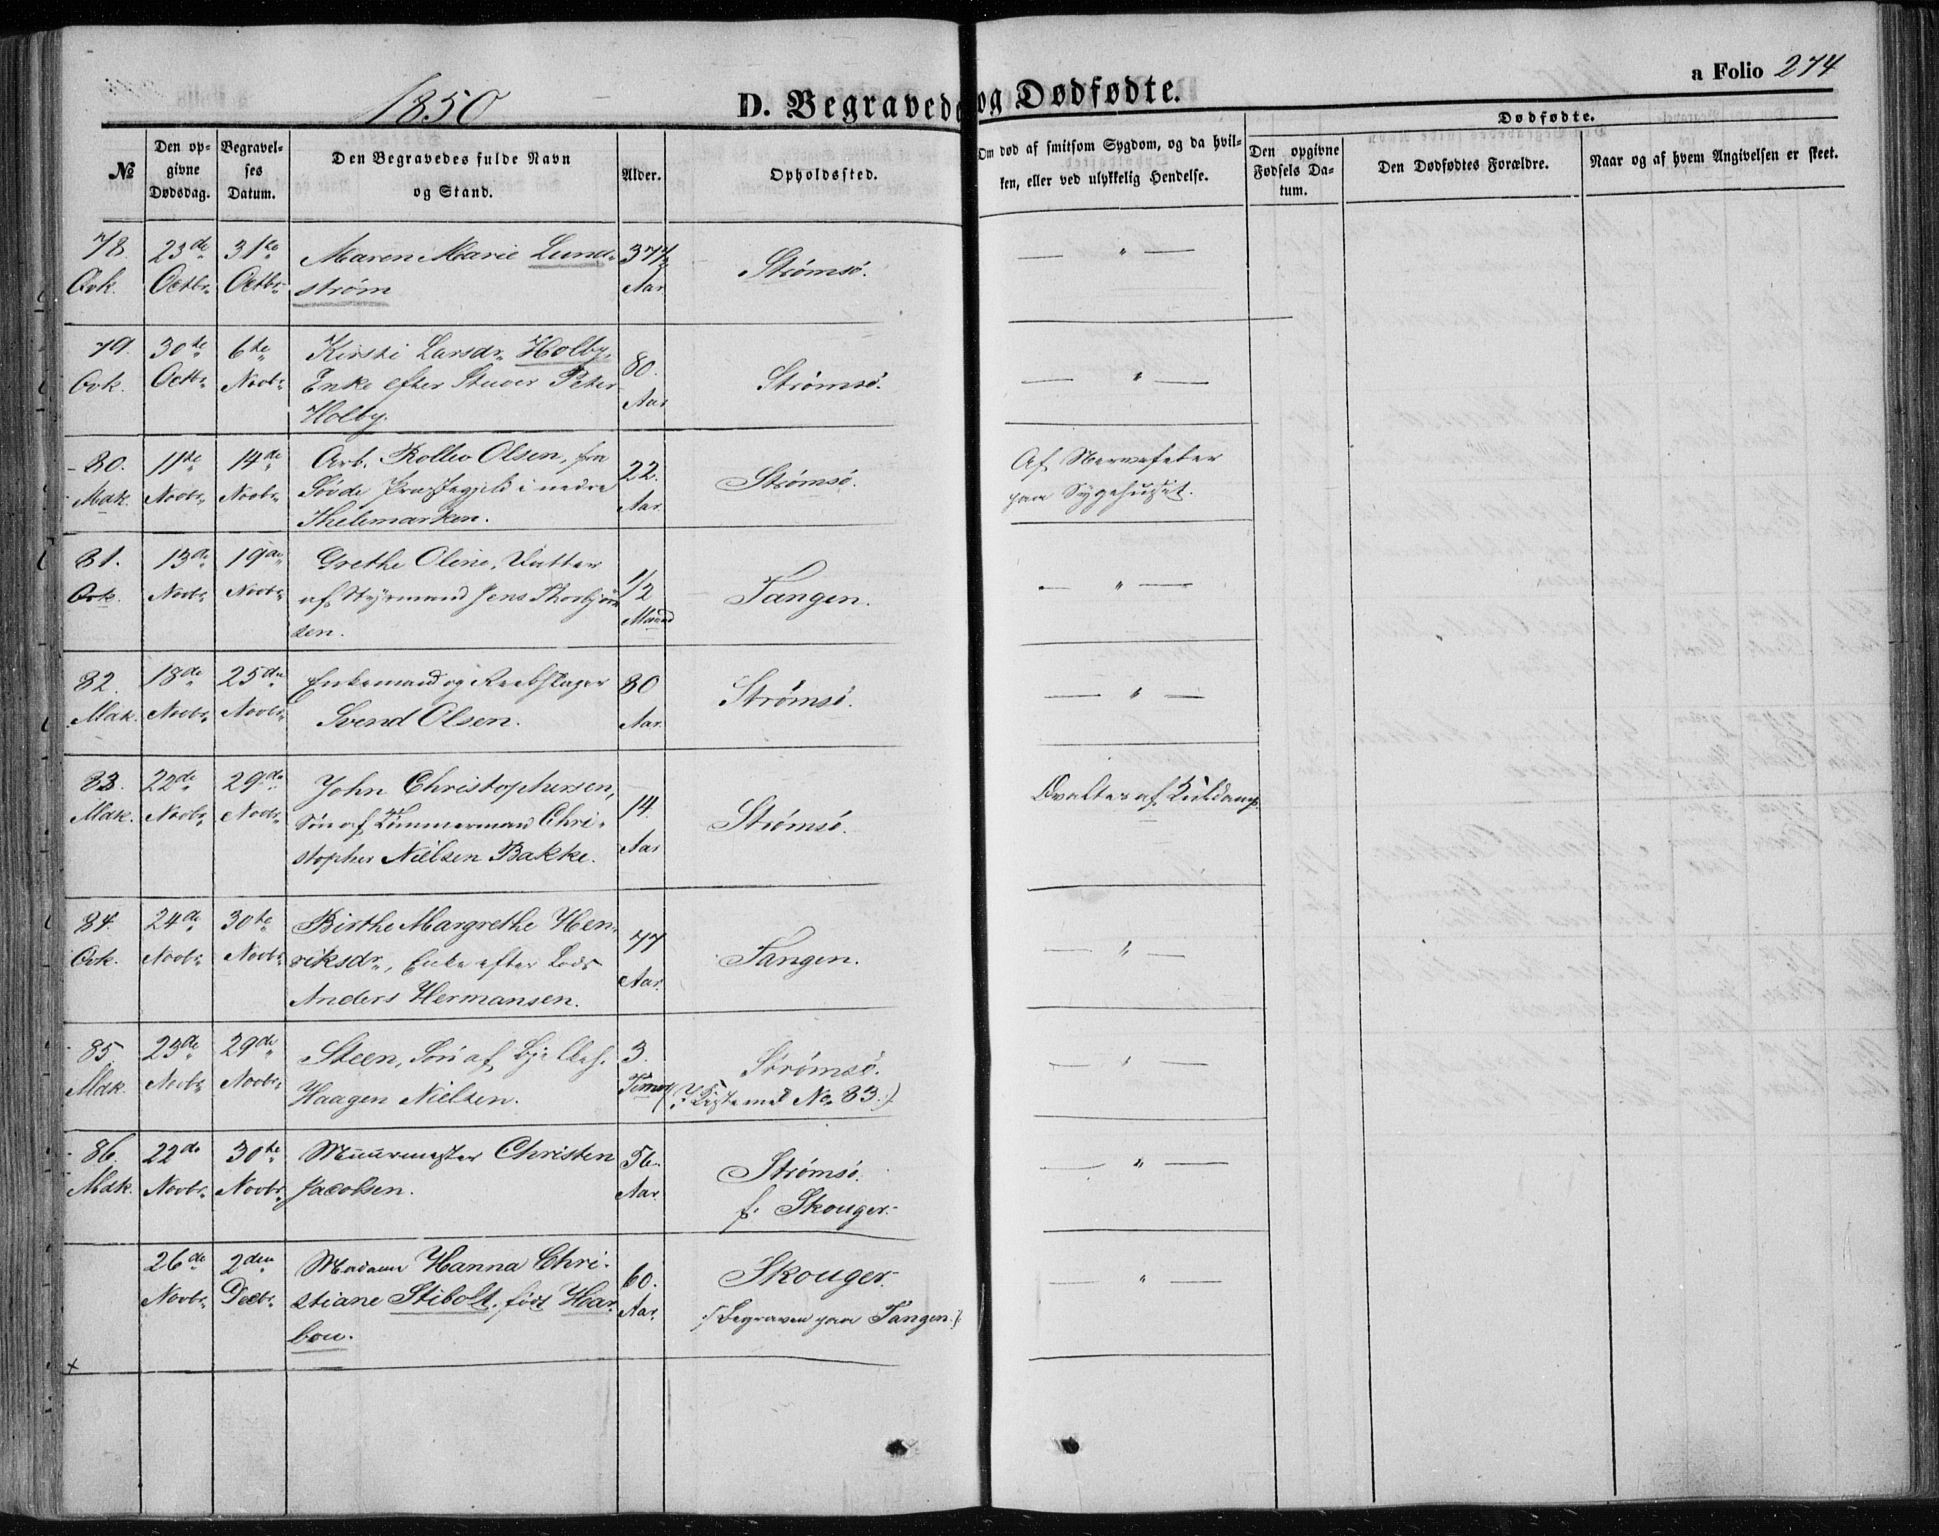 a Folio 274
1850
D. Begravede og Dødfødte.
№
Den opgivne Dødsdag.
Begravelses Datum.
Den Begravedes fulde Navn og Stand.
Alder.
Opholdssted.
Om død af smitsom Sygdom, og da hvilken, eller ved ulykkelig Hendelse.
Dødfødte.
Den opgivne Fødsels Datum.
Den Dødfødtes Forældre.
Naar og af hvem Angivelsen er skeet.
78. 23de 31te Maren Marie Lund- 37½ Strømsø. — " —
Qvk. Octbr. Octbr. strøm Aar
79. 30te 6te Kirsti Larsdr. Holby, 80. Strømsø. — " —
Qvk. Octbr. Novbr. Enke efter Stuer Peter Aar
Holby.
80. 11te 14de Arb. Rollev Olsen, fra 22. Strømsø. Af Nervefeber
Mdk. Novbr. Novbr. Søvde Præstegjeld i nedre Aar paa Sygehuset.
Thelemarken.
81. 13de 19de Grethe Oline, Datter 1/2 Tangen. — " —
Qvk. Novbr. Novbr. af Styrmand Jens Thorbjørn- Maaned
sen.
82. 18de 25de Enkemand og Reebslager 80 Strømsø. — " —
Mdk. Novbr. Novbr. Svend Olsen. Aar.
83. 22de 29de John Christophersen, 14. Strømsø. Qvalt af Kuldamp
Mdk. Novbr. Novbr. Søn af Tømmermand Chri- Aar
stopher Nielsen Bakke.
84. 24de 30te Birthe Margrethe Hen- 77 Tangen. — " —
Qvk. Novbr. Novbr. riksdr., Enke efter Lods Aar.
Anders Hermansen.
85. 23de 29de Steen, Søn af 3. Strømsø. — " —
Mdk. Novbr. Novbr. Haagen Nielsen. Timer (I Kiste med No. 83.)
86. 22de 30te Muurmester Christen 56. Strømsø. — " —
Mdk. Novbr. Novbr. Jacobsen. Aar. f. Skouger.
26de 2den Madam Hanna Chri- 60. Skouger. — " —
Novbr. Decbr. stiane Stibolt, født Har- Aar. (Begraven paa Tangen.)
bou.